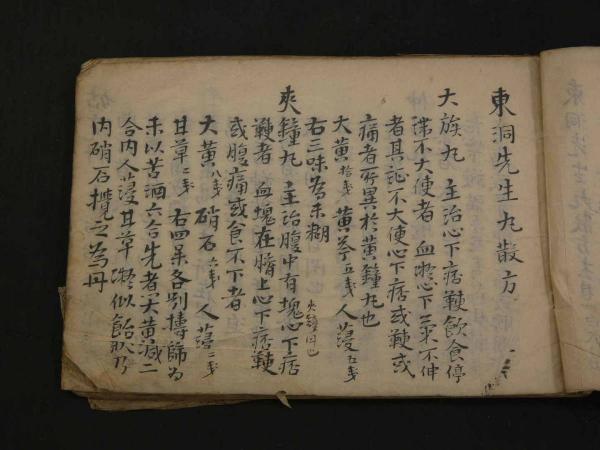 東洞先生丸散方
大族丸 主治心下痞鞕飲食停
滞不大便者 血凝心下 不伸
者其証不大便心下痞或鞕或
痛者所異於黄鐘丸也
大黄拾戔 黄芩五戔 人蓡五戔
右三味為末糊
夾鐘円也
夾鐘丸 主治腹中有塊心下痞
鞕者 血塊在臍上心下痞鞕
或腹痛或食不下者
大黄八戔 硝石六戔 人蓡二戔
甘草二戔 右四 各別擣篩為
末以苦酒六合先煮大黄減二
合内人蓡甘草 似飴 乃
内硝石攪之為丹